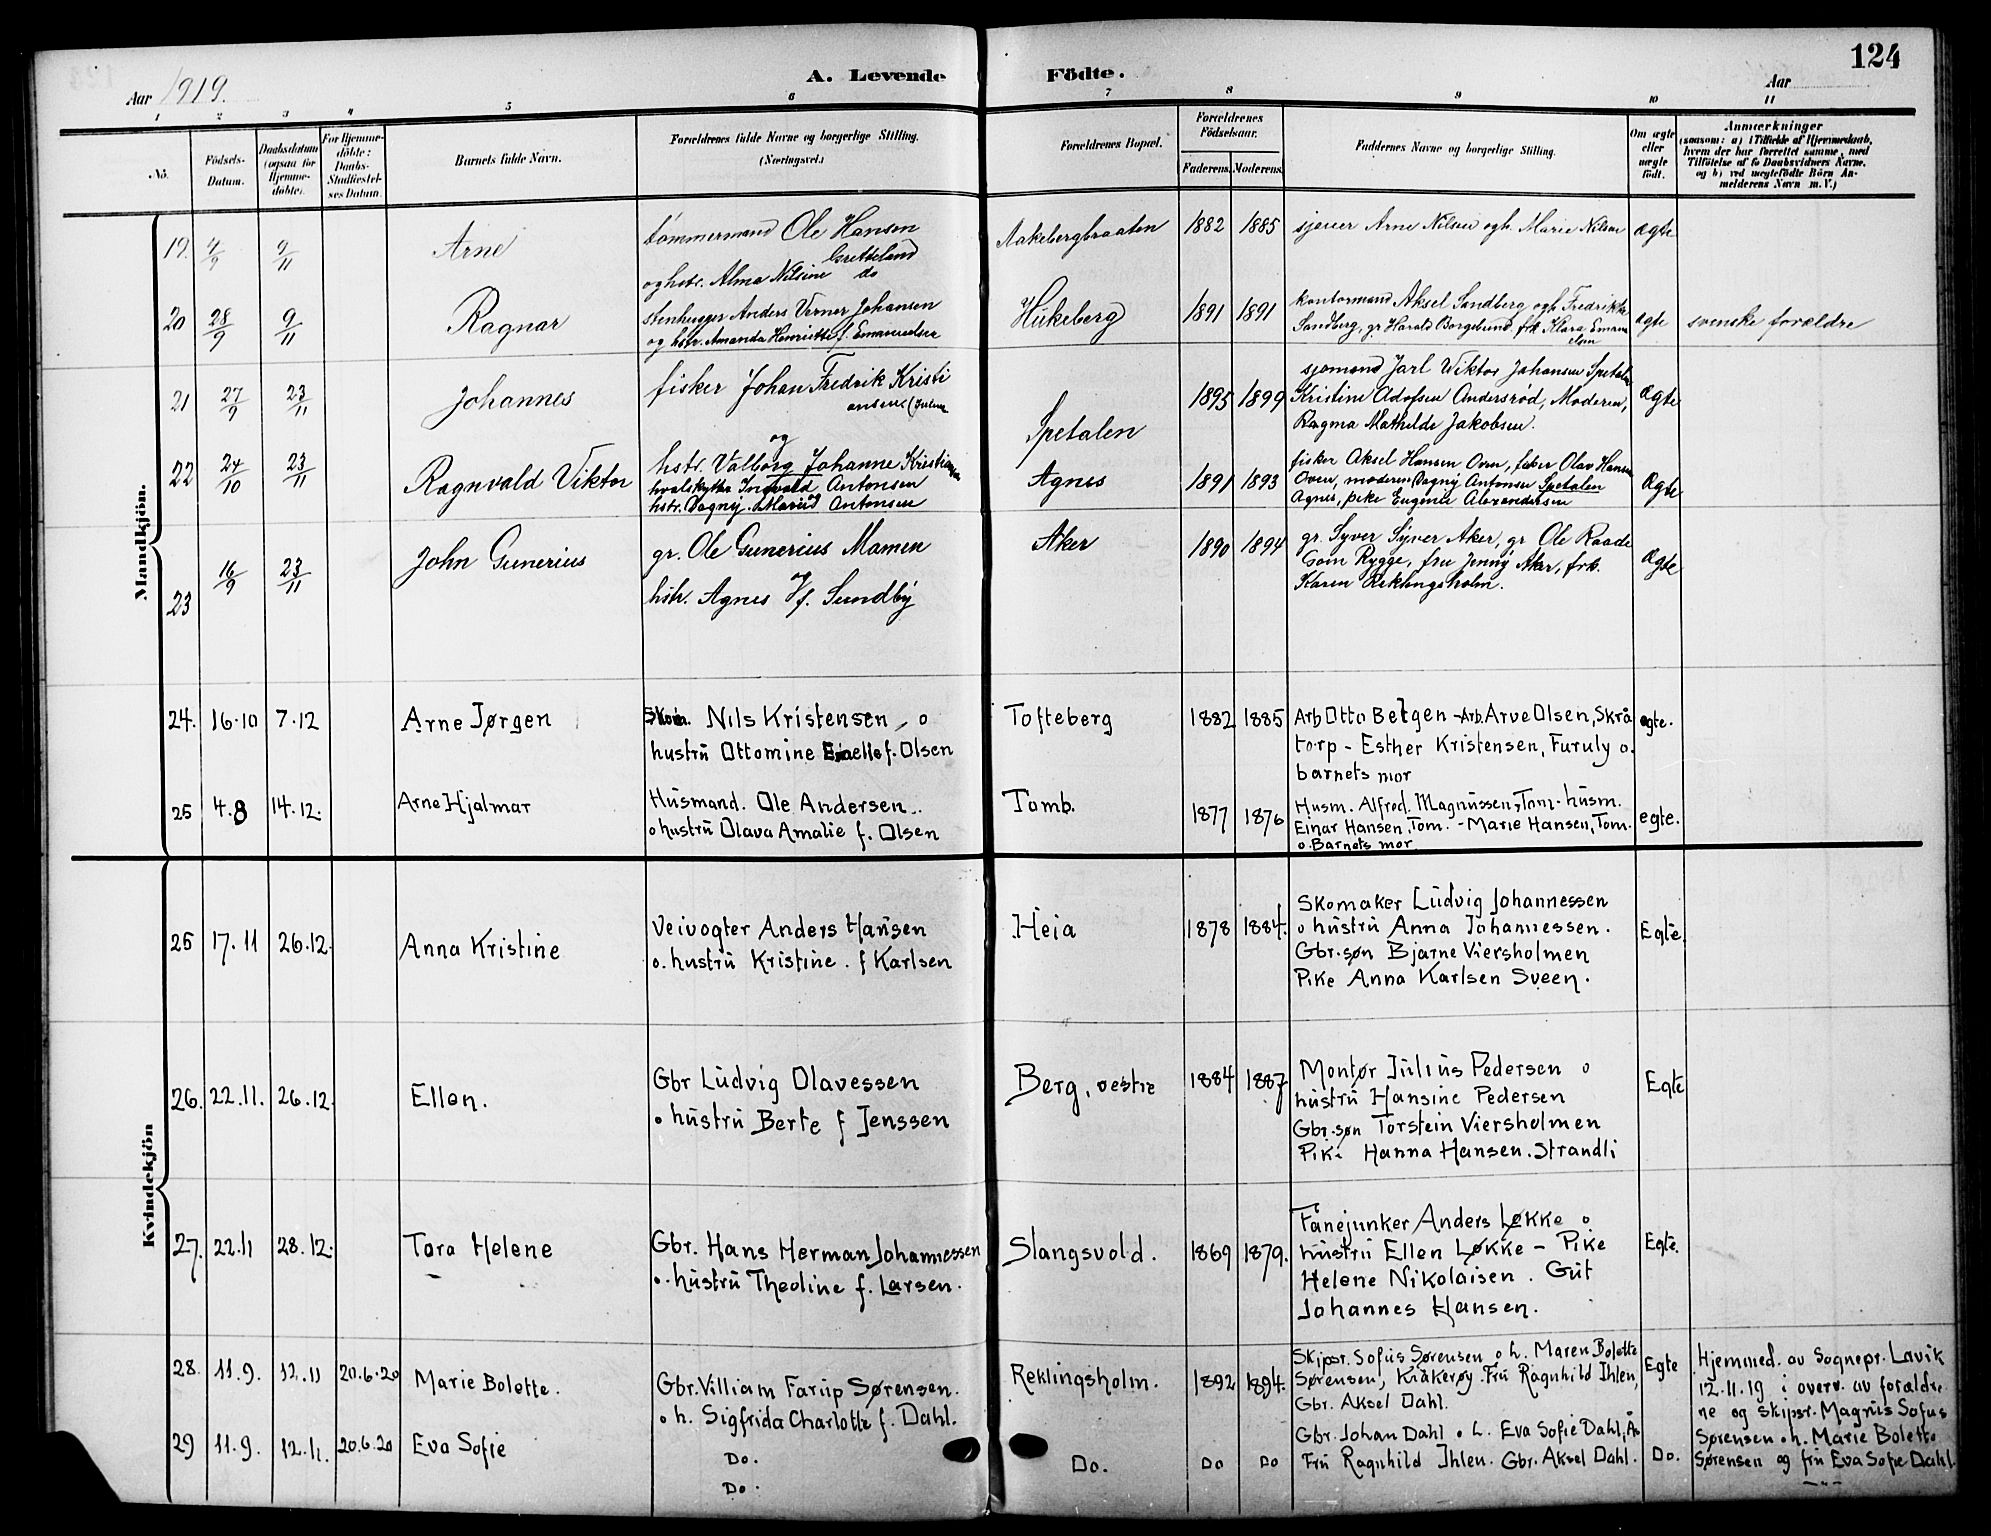 124
Aar 1919.
A. Levende Födte.
Aar
1 2 3 4 5 6 7 8 9 10 11
No.
Födsels-Datum.
Daabsdatum (ogsaa for Hjemme-döbte).
For Hjemme-döbte: Daabs-Stadfæstel-ses Datum.
Barnets fulde Navn.
Forældrenes fulde Navne og borgerlige Stilling. (Næringsvei.)
Forældrenes Bopæl.
Forældrenes Födselsaar.
Faderens. Moderens.
Faddernes Navne og borgerlige Stilling.
Om ægte eller uægte født.
Anmærkninger
(saasom: a) i Tilfælde af Hjemmedaab, hvem der har forrettet samme, med Tilföielse af to Daabsvidners Navne, og b) ved uægtefödte Börn An-melderens Navn m. V.)
Mandkjön.
19. 4/9 9/11 Arne
tømmermand Ole Hansen Gretteland
og hstr. Alma Nilsine do
Aakebergbraaten 1882 1885
sjauer Arne Nilsen og h. Marie Nilsen
ægte
20 28/9 9/11 Ragnar
stenhugger Anders Verner Johansen
og hstr. Amanda Henriette f. Emanuelsen
Hukeberg 1891 1891
kontormand Aksel Sandberg og h. Fredrikke
Sandberg, gr. Harald Borgelund frk. Klara Emanu
elsen
ægte
svenske forældre
21 27/9 23/11 Johannes
fisker Johan Fredrik Kristi
ansen
og
hstr. Valborg Johanne Kristiansen
Spetalen 1895 1899
sjømand Jarl Viktor Johansen Spetalen
Kristine Adofsen Andersrød, Moderen,
Ragna Mathilde Jakobsen.
Ægte
22 24/10 23/11 Ragnvald Viktor
hvalskytter Ingvald Antonsen
hstr. Dagny Antonsen
Agnes 1891 1893
fisker Aksel Hansen Oven, fisker Olav Hansen
Oven, moderen Dagny Antonsen Spetalen
Agnes, pike Eugenie Alexandersen
Ægte
23 16/9 23/11 John Gunerius
gr. Ole Gunerius Mamen
og
hstr. Agnes f. Sundby
Aker 1890 1894
gr. Syver Syver Aker, gr Ole Raade
Rygge, fru Jenny Aker, frk.
Karen Reklingsholm.
Ægte
24. 16.10 7.12 Arne Jørgen
Skom. Nils Kristensen, o
hustrū Ottomine f. Olsen
Tofteberg 1882 1885
Arb Otto Bergen - Arb. Arve Olsen, Skrå
torp - Esther Kristensen, Furuly o.
barnets mor
egte.
25 4.8 14.12. Arne Hjalmar
Hūsmand. Ole Andersen
o hustrū Olava Amalie f. Olsen
Tomb. 1877 1876
Husm. Alfred. Magnūssen, Tom. hūsm.
Einar Hansen, Tom. - Marie Hansen, Tom.
o. Barnets mor
egte.
Kvindekjön
25 17.11 26.12. Anna Kristine
Veivogter Anders Hansen
o. hustrū Kristine. f Karlsen
Heia 1878 1884.
Skomaker Lūdvig Johannessen
o hūstrū Anna Johannessen.
Gbr.søn Bjarne Viersholmen
Pike Anna Karlsen Sveen.
Egte.
26. 22.11. 26.12. Ellen.
Gbr Lūdvig Olavessen
o hūstrū Berte f Jenssen
Berg, vestre 1884 1887
Montør Jūliūs Pedersen o
hūstrū Hansine Pedersen
Gbr.søn Torstein Viersholmen
Pike Hanna Hansen. Strandli
Egte
27. 22.11 28.12. Tora Helene
Gbr. Hans Herman Johannessen
o. hūstrū Theoline f. Larsen.
Slangsvold. 1869 1879.
Fanejunker Anders Løkke o
hūstrū Ellen Løkke - Pike
Helene Nikolaisen. Gūt
Johannes Hansen.
Egte.
28. 11.9. 12.11 20.6.20 Marie Bolette.
Gbr. Villiam Farup Sørensen.
o h. Sigfrida Charlotte f. Dahl.
Reklingsholm. 1892 1894.
Skipsr. Sofūs Sørensen o h. Maren Bolette
Sørensen, Kråkerøy. Frū Ragnhild Ihlen,
Gbr. Aksel Dahl.
Egte
Hjemmed. av Sognepr. Lavik
12.11.19 i overv. av forældre
ne og skipsr. Magnūs Sofus
Sørensen o h. Marie Bolette
Sørensen og frū Eva Sofie Dahl.
29 11.9. 12.11. 20.6.20 Eva Sofie
Do.
Do.
Do. Do Do
Gbr. Johan Dahl o h. Eva Sofie Dahl, Ås
Frū Ragnhild Ihlen. Gbr. Aksel Dahl.
Do.
— " —